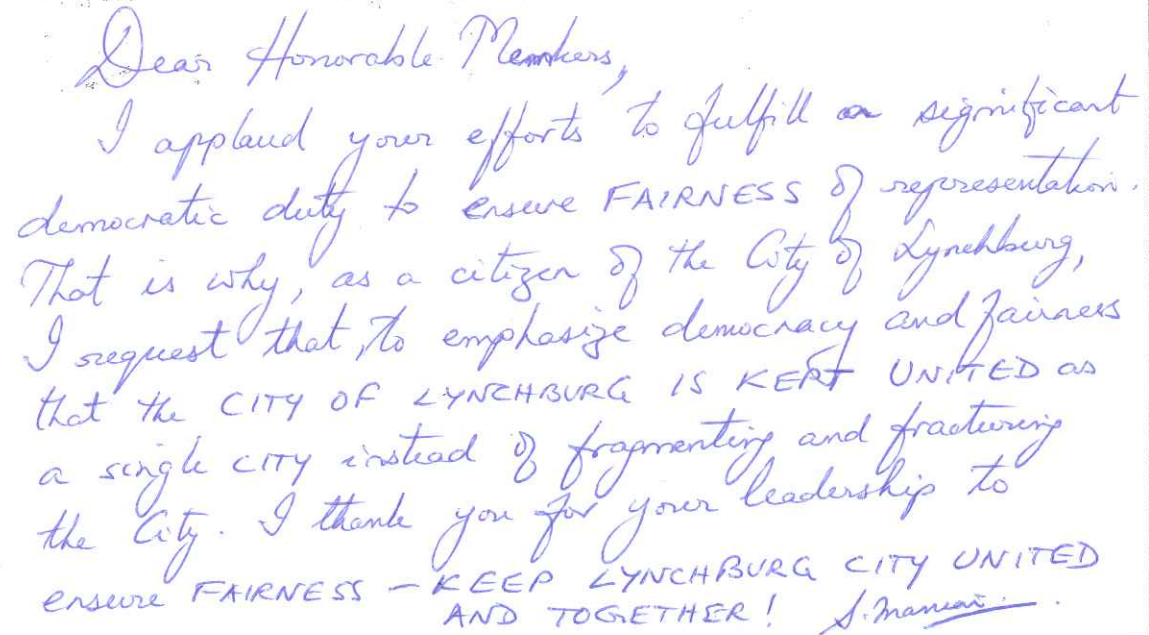 Dear Honorable Members,
I applaud your efforts to fulfill a significant
democratic duty to ensure FAIRNESS of representation.
That is why, as a citizen of the City of Lynchburg,
I request that, to emphasize democracy and fairness
that the CITY OF LYNCHBURG IS KEPT UNITED as
a single CITY instead of fragmenting and fracturing
the City. I thank you for your leadership to
ensure FAIRNESS – KEEP LYNCHBURG CITY UNITED
AND TOGETHER! S.